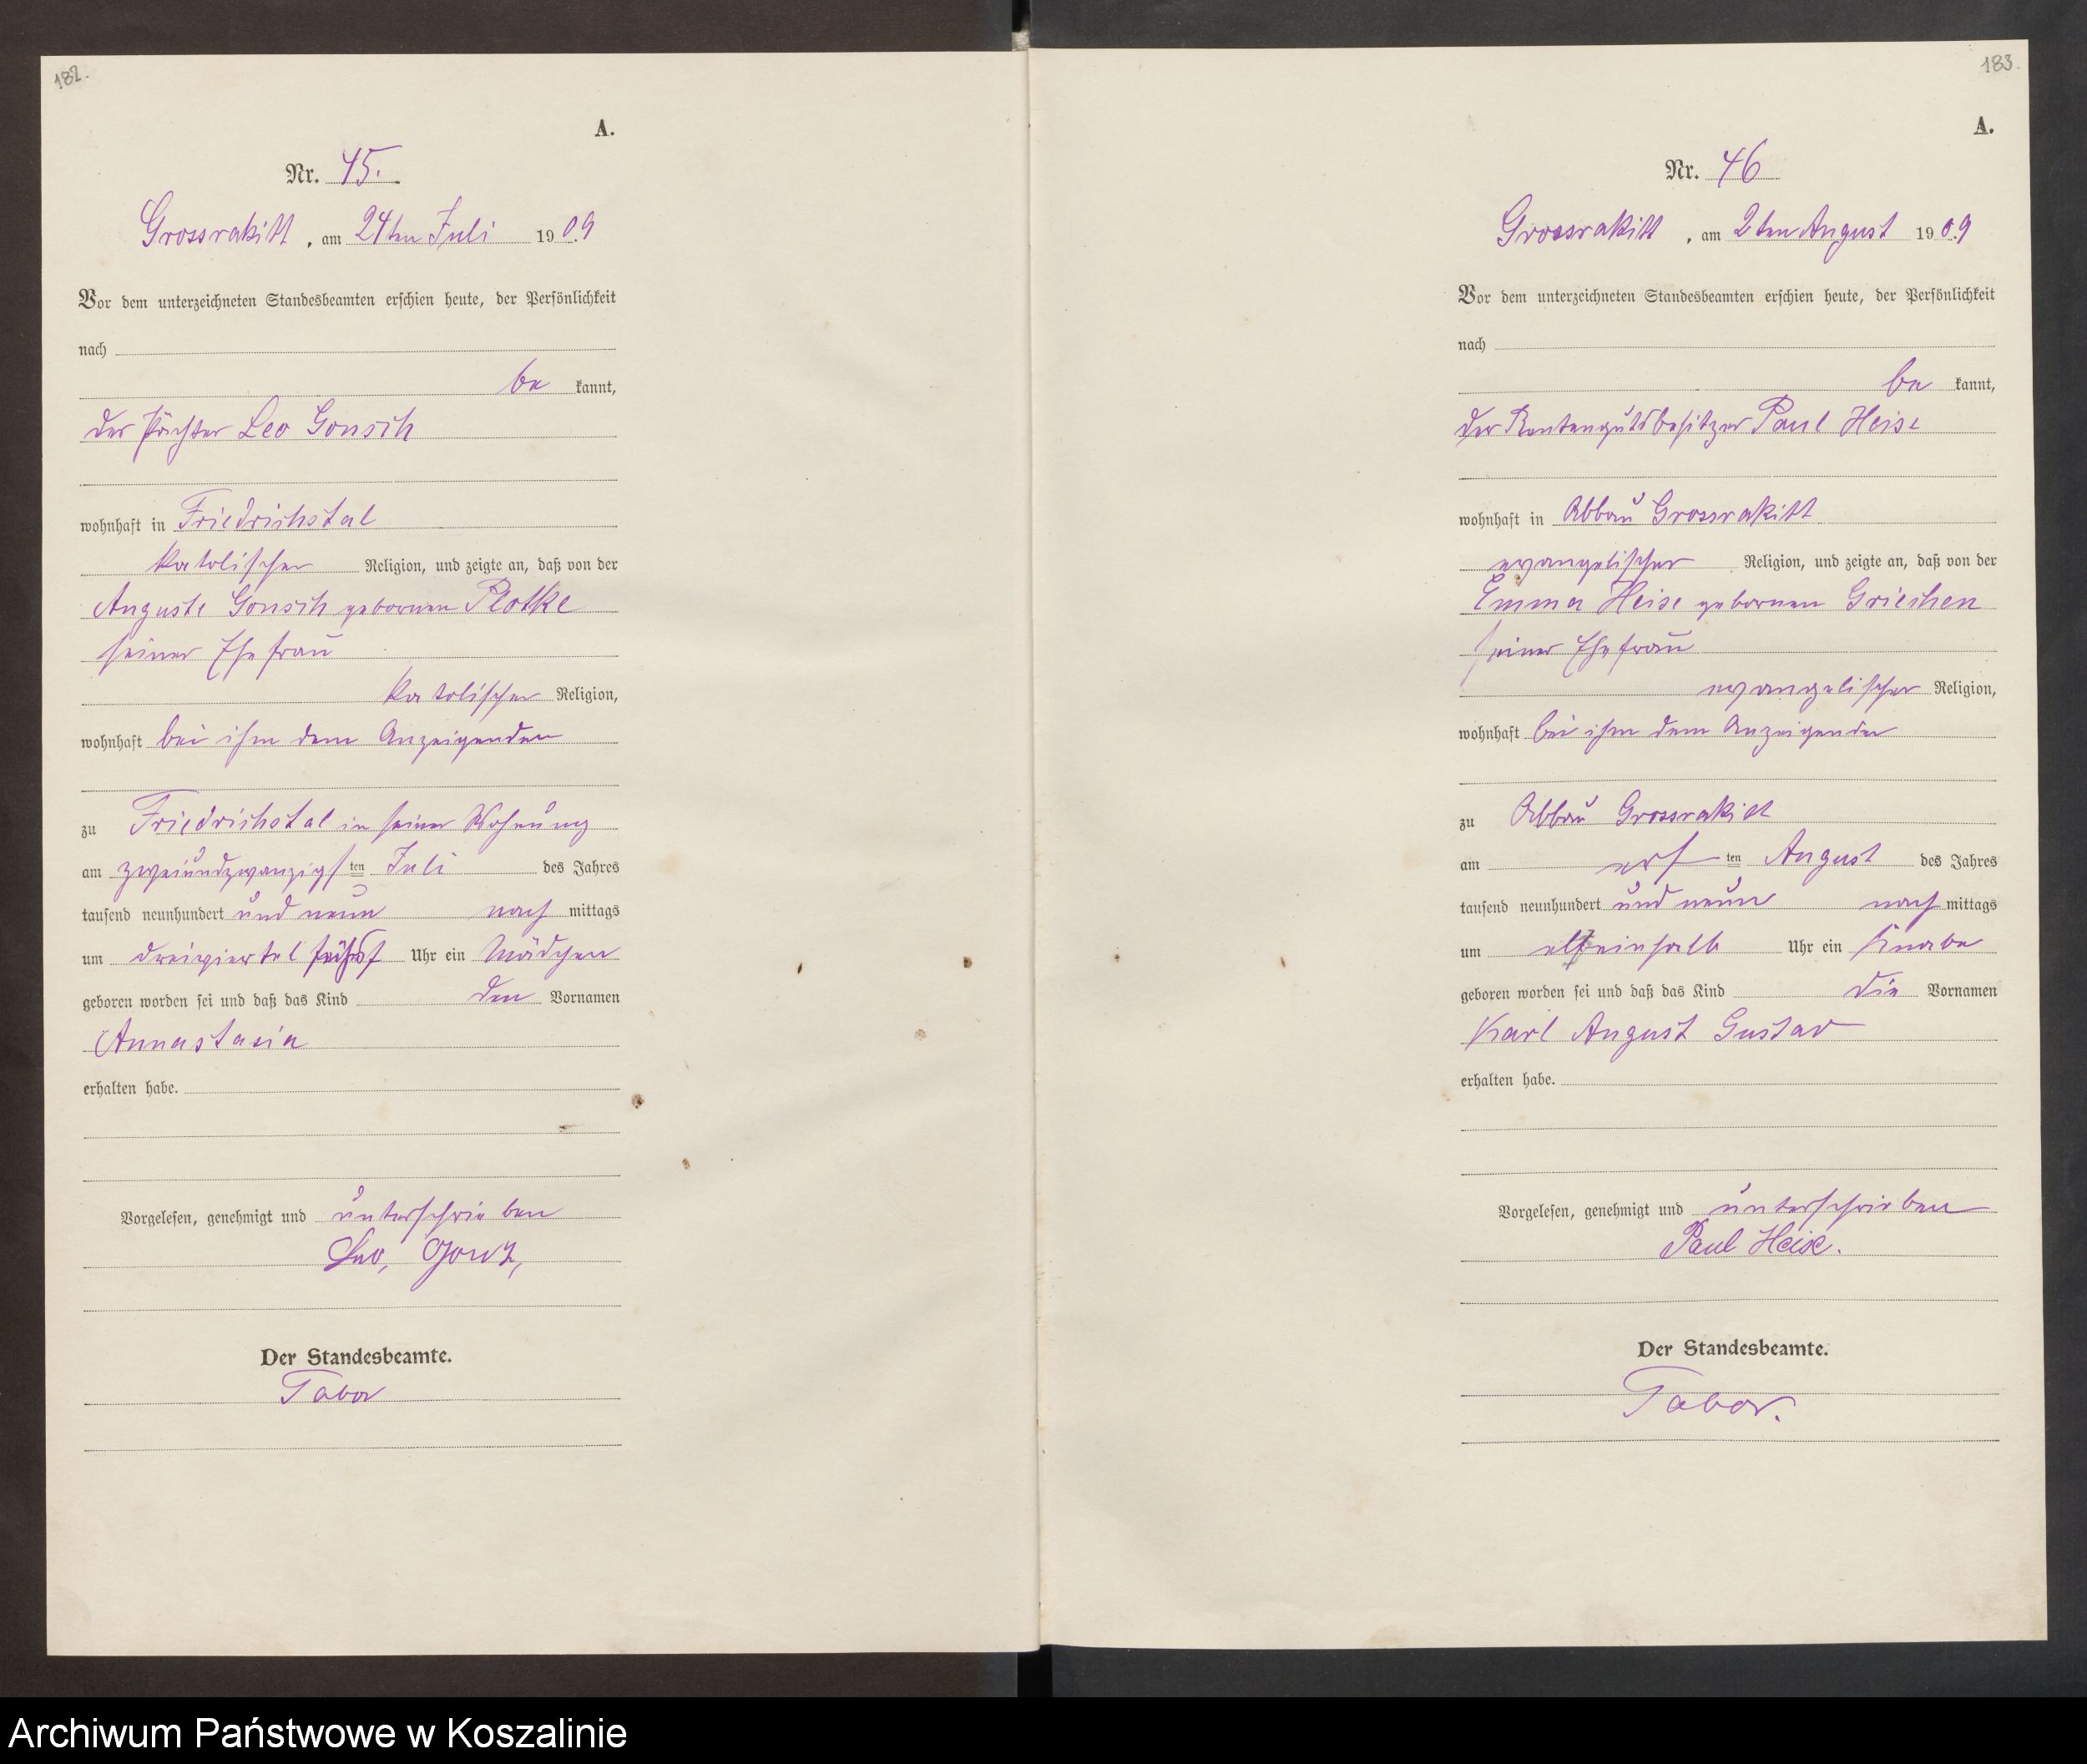 182.
A.
Nr. 45.
Grossrakitt, am 24ten Juli 1909
Vor dem unterzeichneten Standesbeamten erschien heute, der Persönlichkeit
nach
be kannt,
der Pächter Leo Gonsch
wohnhaft in Friedrichstal
katolischer Religion, und zeigte an, daß von der
Auguste Gonsch gebornen Plotke
seiner Ehefrau
katolischer Religion,
wohnhaft bei ihm dem Anzeigenden
zu Friedrichstal in seiner Wohnung
am zweiundzwanzigsten Juli des Jahres
tausend neunhundert und neun nach mittags
um dreiviertel Uhr ein Mädchen
geboren worden sei und daß das Kind den Vornamen
Annastasia
erhalten habe.
Vorgelesen, genehmigt und unterschrieben
Leo, Gonz,
Der Standesbeamte.
Tabor
183.
A.
Nr. 46
Grossrakitt, am 2ten August 1909
Vor dem unterzeichneten Standesbeamten erschien heute, der Persönlichkeit
nach
be kannt,
der Rentengutsbesitzer Paul Heise
wohnhaft in Abbau Grossrakitt
evangelischer Religion, und zeigte an, daß von der
Emma Heise gebornen Griechen
seiner Ehefrau
evangelischer Religion,
wohnhaft bei ihm dem Anzeigenden
zu Abbau Grossrakitt
am ersten August des Jahres
tausend neunhundert und neun nach mittags
um elfeinhalb Uhr ein Knabe
geboren worden sei und daß das Kind die Vornamen
Karl August Gustav
erhalten habe.
Vorgelesen, genehmigt und unterschrieben
Paul Heise.
Der Standesbeamte.
Tabor.
Archiwum Państwowe w Koszalinie